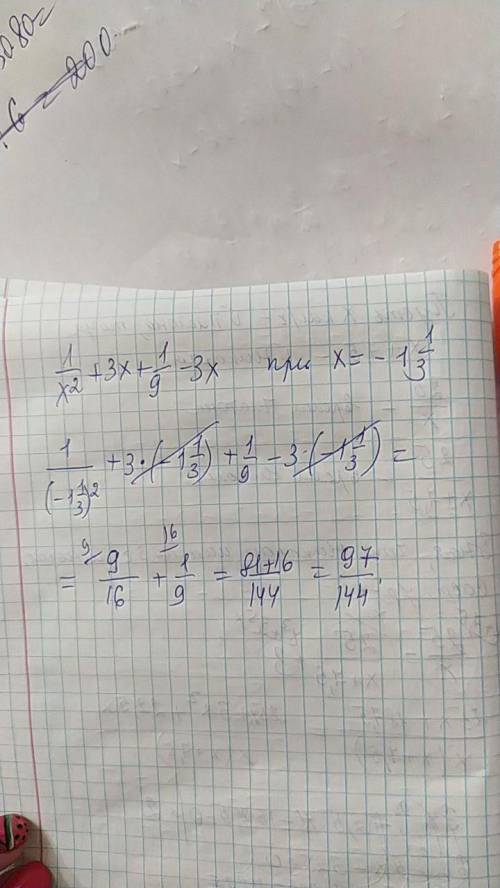 3080=
6 = 200
1/x² + 3x + 1/9 - 3x при x = - 1 1/3
1/(-1 1/3)² + 3·(-1 1/3) + 1/9 - 3·(-1 1/3) =
= 9/16 + 1/9 = 81+16/144 = 97/144.